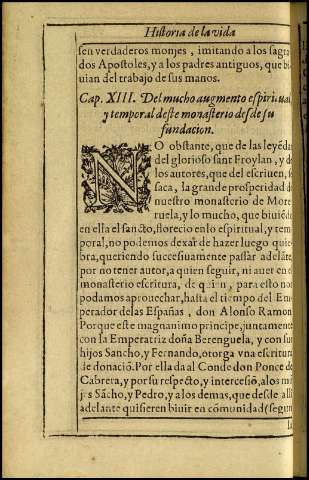 Historia de la vida
sen verdaderos monjes, imitando a los sagra
dos Apostoles, y a los padres antiguos, que bi
uian del trabajo de sus manos.
Cap. XIII. Del mucho augmento espiritual
y temporal deste monasterio desde su
fundacion.
NO obstante, que de las leyẽdas
del glorioso sant Froylan, y de
los autores, que del escriuen, se
saca, la grande prosperidad de
nuestro monasterio de More
ruela, y lo mucho, que biuiẽdo
en ella el sancto, florecio en lo espiritual, y tem
poral, no podemos dexar de hazer luego quie
bra, queriendo successiuamente passar adelãte
por no tener autor, a quien seguir, ni auer en el
monasterio escritura, de quien, para esto nos
podamos aprouechar, hasta el tiempo del Em
perador de las Españas, don Alonso Ramon
Porque este magnanimo principe, juntamente
con la Emperatriz doña Berenguela, y con sus
hijos Sancho, y Fernando, otorga vna escritura
de donaciõ. Por ella da al Conde don Ponce de
Cabrera, y por su respecto, y intercesiõ, a los mõ
jes Sãcho, y Pedro, y a los demas, que desde alli
adelante quisieren biuir en cõmunidad (segun
la